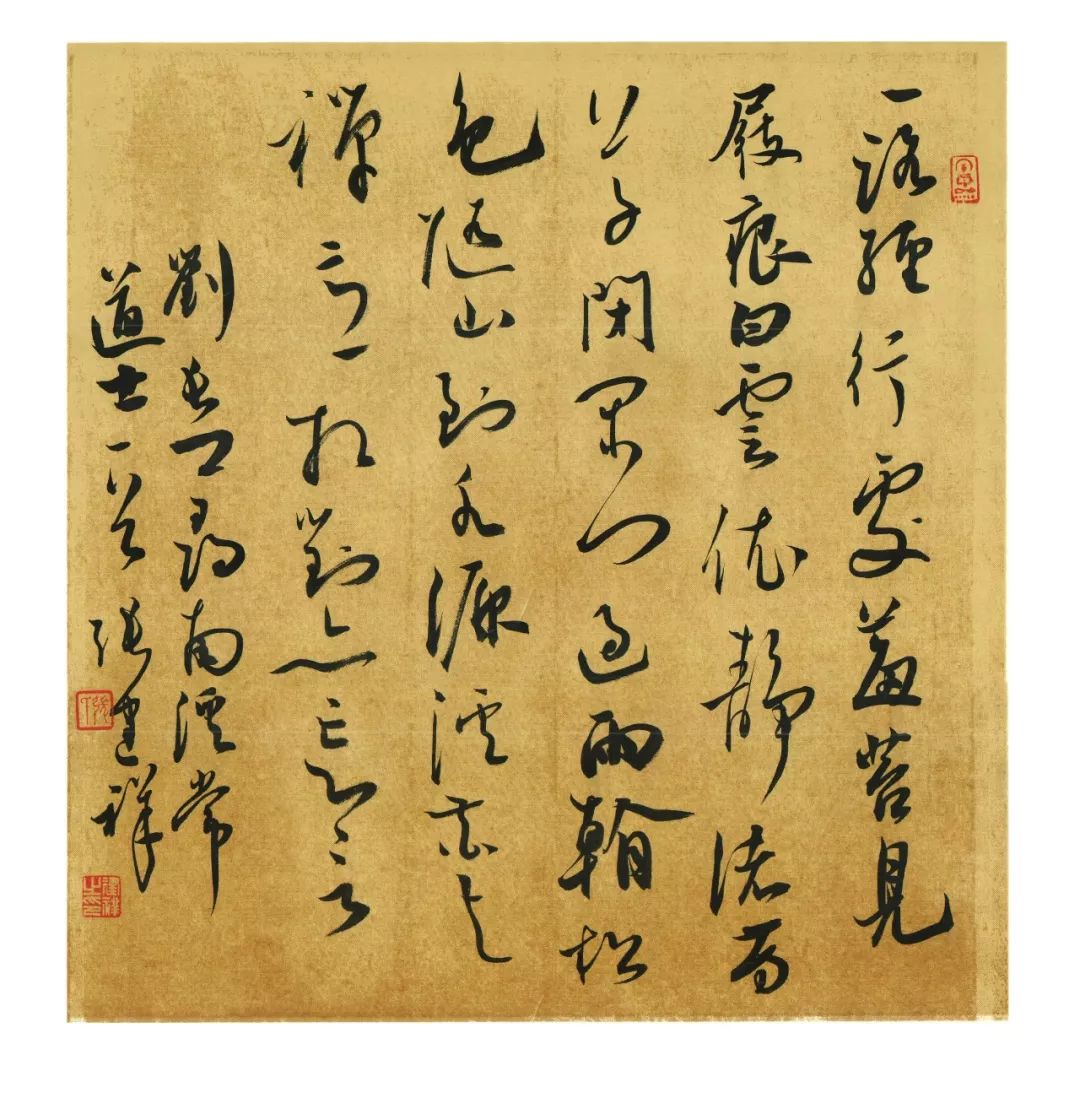 一路經行處莓苔見
屐痕白雲依靜渚芳
草閉閑門過雨看松
色隨山到水源溪花與
禪意相對亦忘言
劉長卿尋南溪常
道士一首 張建祥
建祥之印